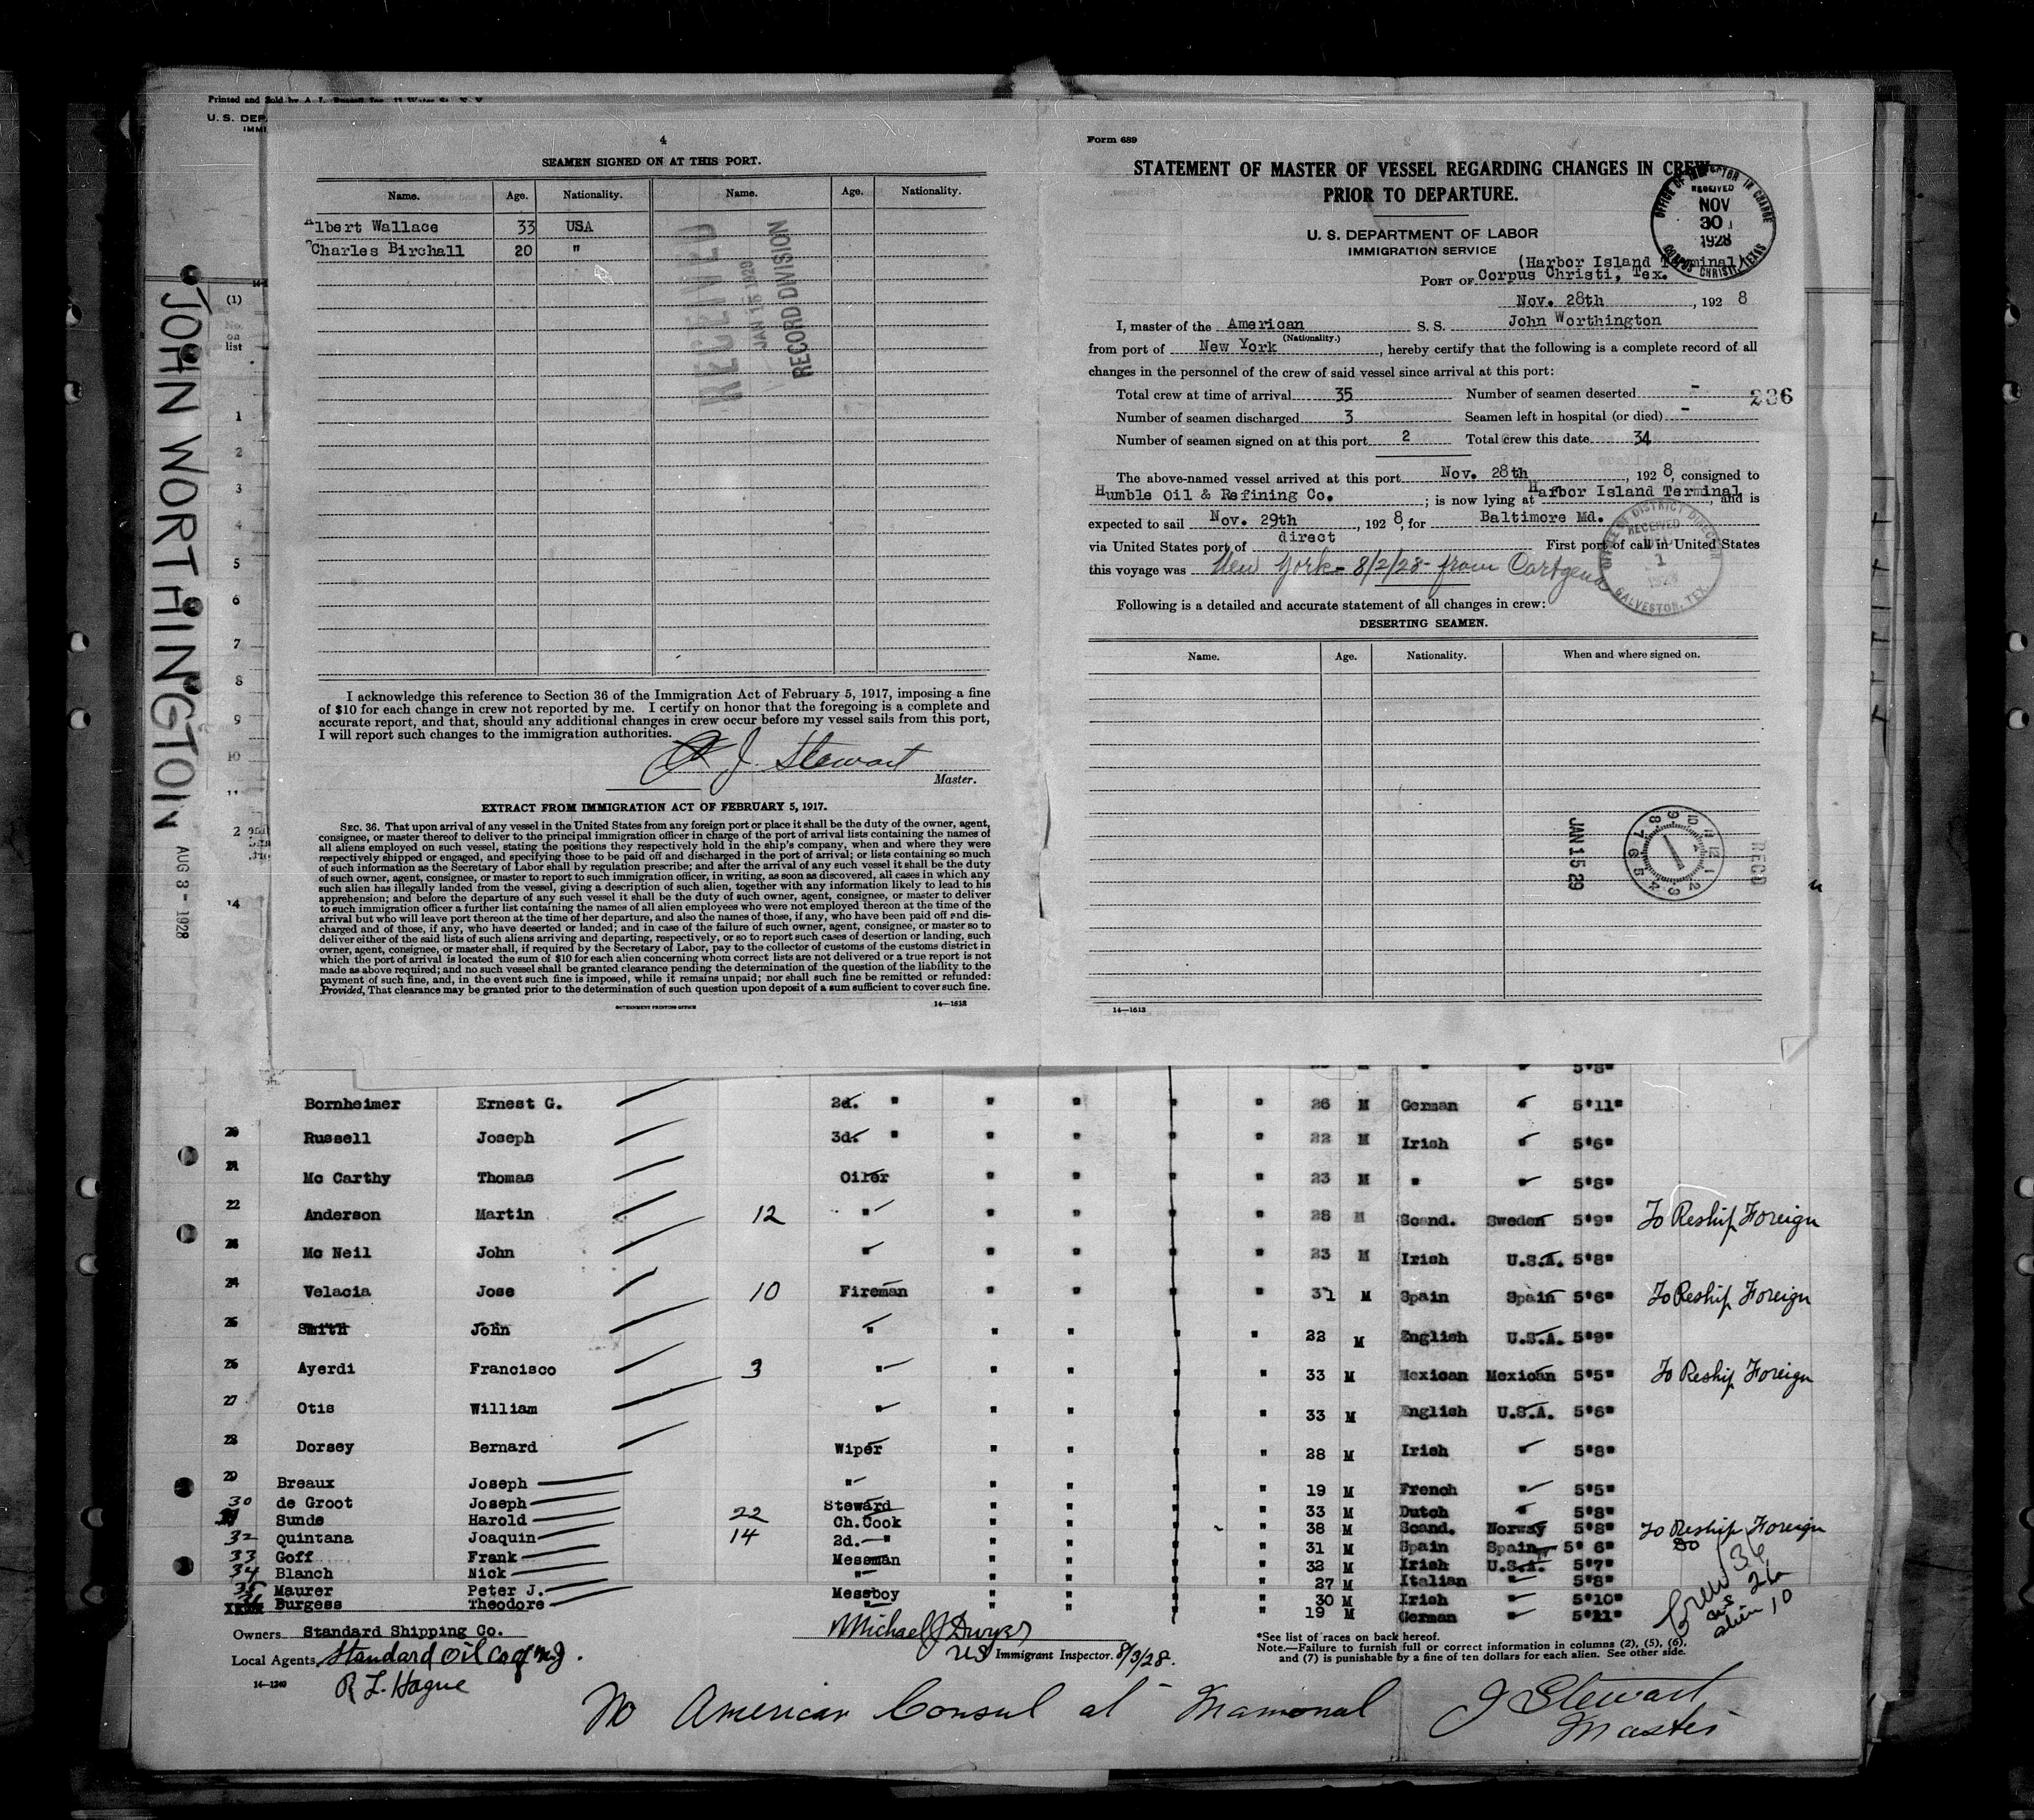 Printed and Sold by A. L.
U. S. DEP
IMMI
4
SEAMEN SIGNED ON AT THIS PORT.
Name. Age. Nationality. Name. Age. Nationality.
Albert Wallace 33 USA
Charles Birchall 20 "
RECEIVED
JAN 15 1929
RECORD DIVISION
I acknowledge this reference to Section 36 of the Immigration Act of February 5, 1917, imposing a fine
of $10 for each change in crew not reported by me. I certify on honor that the foregoing is a complete and
accurate report, and that, should any additional changes in crew occur before my vessel sails from this port,
I will report such changes to the immigration authorities.
J. Stewart
Master.
EXTRACT FROM IMMIGRATION ACT OF FEBRUARY 5, 1917.
SEC. 36. That upon arrival of any vessel in the United States from any foreign port or place it shall be the duty of the owner, agent,
consignee, or master thereof to deliver to the principal immigration officer in charge of the port of arrival lists containing the names of
all aliens employed on such vessel, stating the positions they respectively hold in the ship's company, when and where they were
respectively shipped or engaged, and specifying those to be paid off and discharged in the port of arrival; or lists containing so much
of such information as the Secretary of Labor shall by regulation prescribe; and after the arrival of any such vessel it shall be the duty
of such owner, agent, consignee, or master to report to such immigration officer, in writing, as soon as discovered, all cases in which any
such alien has illegally landed from the vessel, giving a description of such alien, together with any information likely to lead to his
apprehension; and before the departure of any such vessel it shall be the duty of such owner, agent, consignee, or master to deliver
to such immigration officer a further list containing the names of all alien employees who were not employed thereon at the time of the
arrival but who will leave port thereon at the time of her departure, and also the names of those, if any, who have been paid off and dis-
charged and of those, if any, who have deserted or landed; and in case of the failure of such owner, agent, consignee, or master so to
deliver either of the said lists of such aliens arriving and departing, respectively, or so to report such cases of desertion or landing, such
owner, agent, consignee, or master shall, if required by the Secretary of Labor, pay to the collector of customs of the customs district in
which the port of arrival is located the sum of $10 for each alien concerning whom correct lists are not delivered or a true report is not
made as above required; and no such vessel shall be granted clearance pending the determination of the question of the liability to the
payment of such fine, and, in the event such fine is imposed, while it remains unpaid; nor shall such fine be remitted or refunded:
Provided, That clearance may be granted prior to the determination of such question upon deposit of a sum sufficient to cover such fine.
GOVERNMENT PRINTING OFFICE 14—1613
JOHN WORTHINGTON
AUG 8 - 1928
(1)
No. on list
1
2
3
4
5
6
7
8
9
10
11
2
14
Form 689
STATEMENT OF MASTER OF VESSEL REGARDING CHANGES IN CREW
PRIOR TO DEPARTURE.
OFFICE OF INSPECTOR IN CHARGE
RECEIVED
NOV
30
1928
CORPUS CHRISTI, TEXAS
U. S. DEPARTMENT OF LABOR
IMMIGRATION SERVICE
(Harbor Island Terminal)
PORT OF Corpus Christi, Tex.
Nov. 28th, 1928
I, master of the American S. S. John Worthington
(Nationality.)
from port of New York, hereby certify that the following is a complete record of all
changes in the personnel of the crew of said vessel since arrival at this port:
Total crew at time of arrival 35 Number of seamen deserted -
236
Number of seamen discharged 3 Seamen left in hospital (or died) -
Number of seamen signed on at this port 2 Total crew this date 34
The above-named vessel arrived at this port Nov. 28th, 1928, consigned to
Humble Oil & Refining Co.; is now lying at Harbor Island Terminal, and is
expected to sail Nov. 29th, 1928, for Baltimore Md.
via United States port of direct First port of call in United States
this voyage was New York - 8/2/28 - from Cartgena
OFFICE OF DISTRICT DIRECTOR
RECEIVED
1
1928
GALVESTON, TEX.
Following is a detailed and accurate statement of all changes in crew:
DESERTING SEAMEN.
Name. Age. Nationality. When and where signed on.
JAN 15 29
REC'D
14—1613
5'8"
Bornheimer Ernest G. 2d. " " " " " 26 M German " 5'11"
20 Russell Joseph 3d. " " " " " 22 M Irish " 5'6"
21 Mc Carthy Thomas Oiler " " " " 23 M " " 5'8"
22 Anderson Martin 12 " " " " " 28 M Scand. Sweden 5'9" To Reship Foreign
23 Mc Neil John " " " " " 23 M Irish U.S.A. 5'8"
24 Velacia Jose 10 Fireman " " " " 31 M Spain Spain 5'6" To Reship Foreign
25 Smith John " " " " " 22 M English U.S.A. 5'9"
26 Ayerdi Francisco 3 " " " " " 33 M Mexican Mexican 5'5" To Reship Foreign
27 Otis William " " " " " 33 M English U.S.A. 5'6"
28 Dorsey Bernard Wiper " " " " 28 M Irish " 5'8"
29 Breaux Joseph " " " " " 19 M French " 5'5"
30 de Groot Joseph Steward " " " " 33 M Dutch " 5'8"
31 Sunde Harold 22 Ch. Cook " " " " 38 M Scand. Norway 5'8" To Reship Foreign
32 Quintana Joaquin 14 2d. " " " " " 31 M Spain Spain 5'6" Do
33 Goff Frank Messman " " " " 32 M Irish U.S.A. 5'7"
34 Blanch Nick " " " " " 27 M Italian " 5'8"
35 Maurer Peter J. Messboy " " " " 30 M Irish " 5'10"
36 Burgess Theodore " " " " " 19 M German " 5'11"
Crew 36
aus 26
alien 10
Owners Standard Shipping Co.
Local Agents Standard Oil Co of N.J.
R L. Hague
14—1240
Michael J Dwyer
US Immigrant Inspector. 8/3/28.
*See list of races on back hereof.
Note.—Failure to furnish full or correct information in columns (2), (5), (6),
and (7) is punishable by a fine of ten dollars for each alien. See other side.
No American Consul at Mamonal
J Stewart
Master